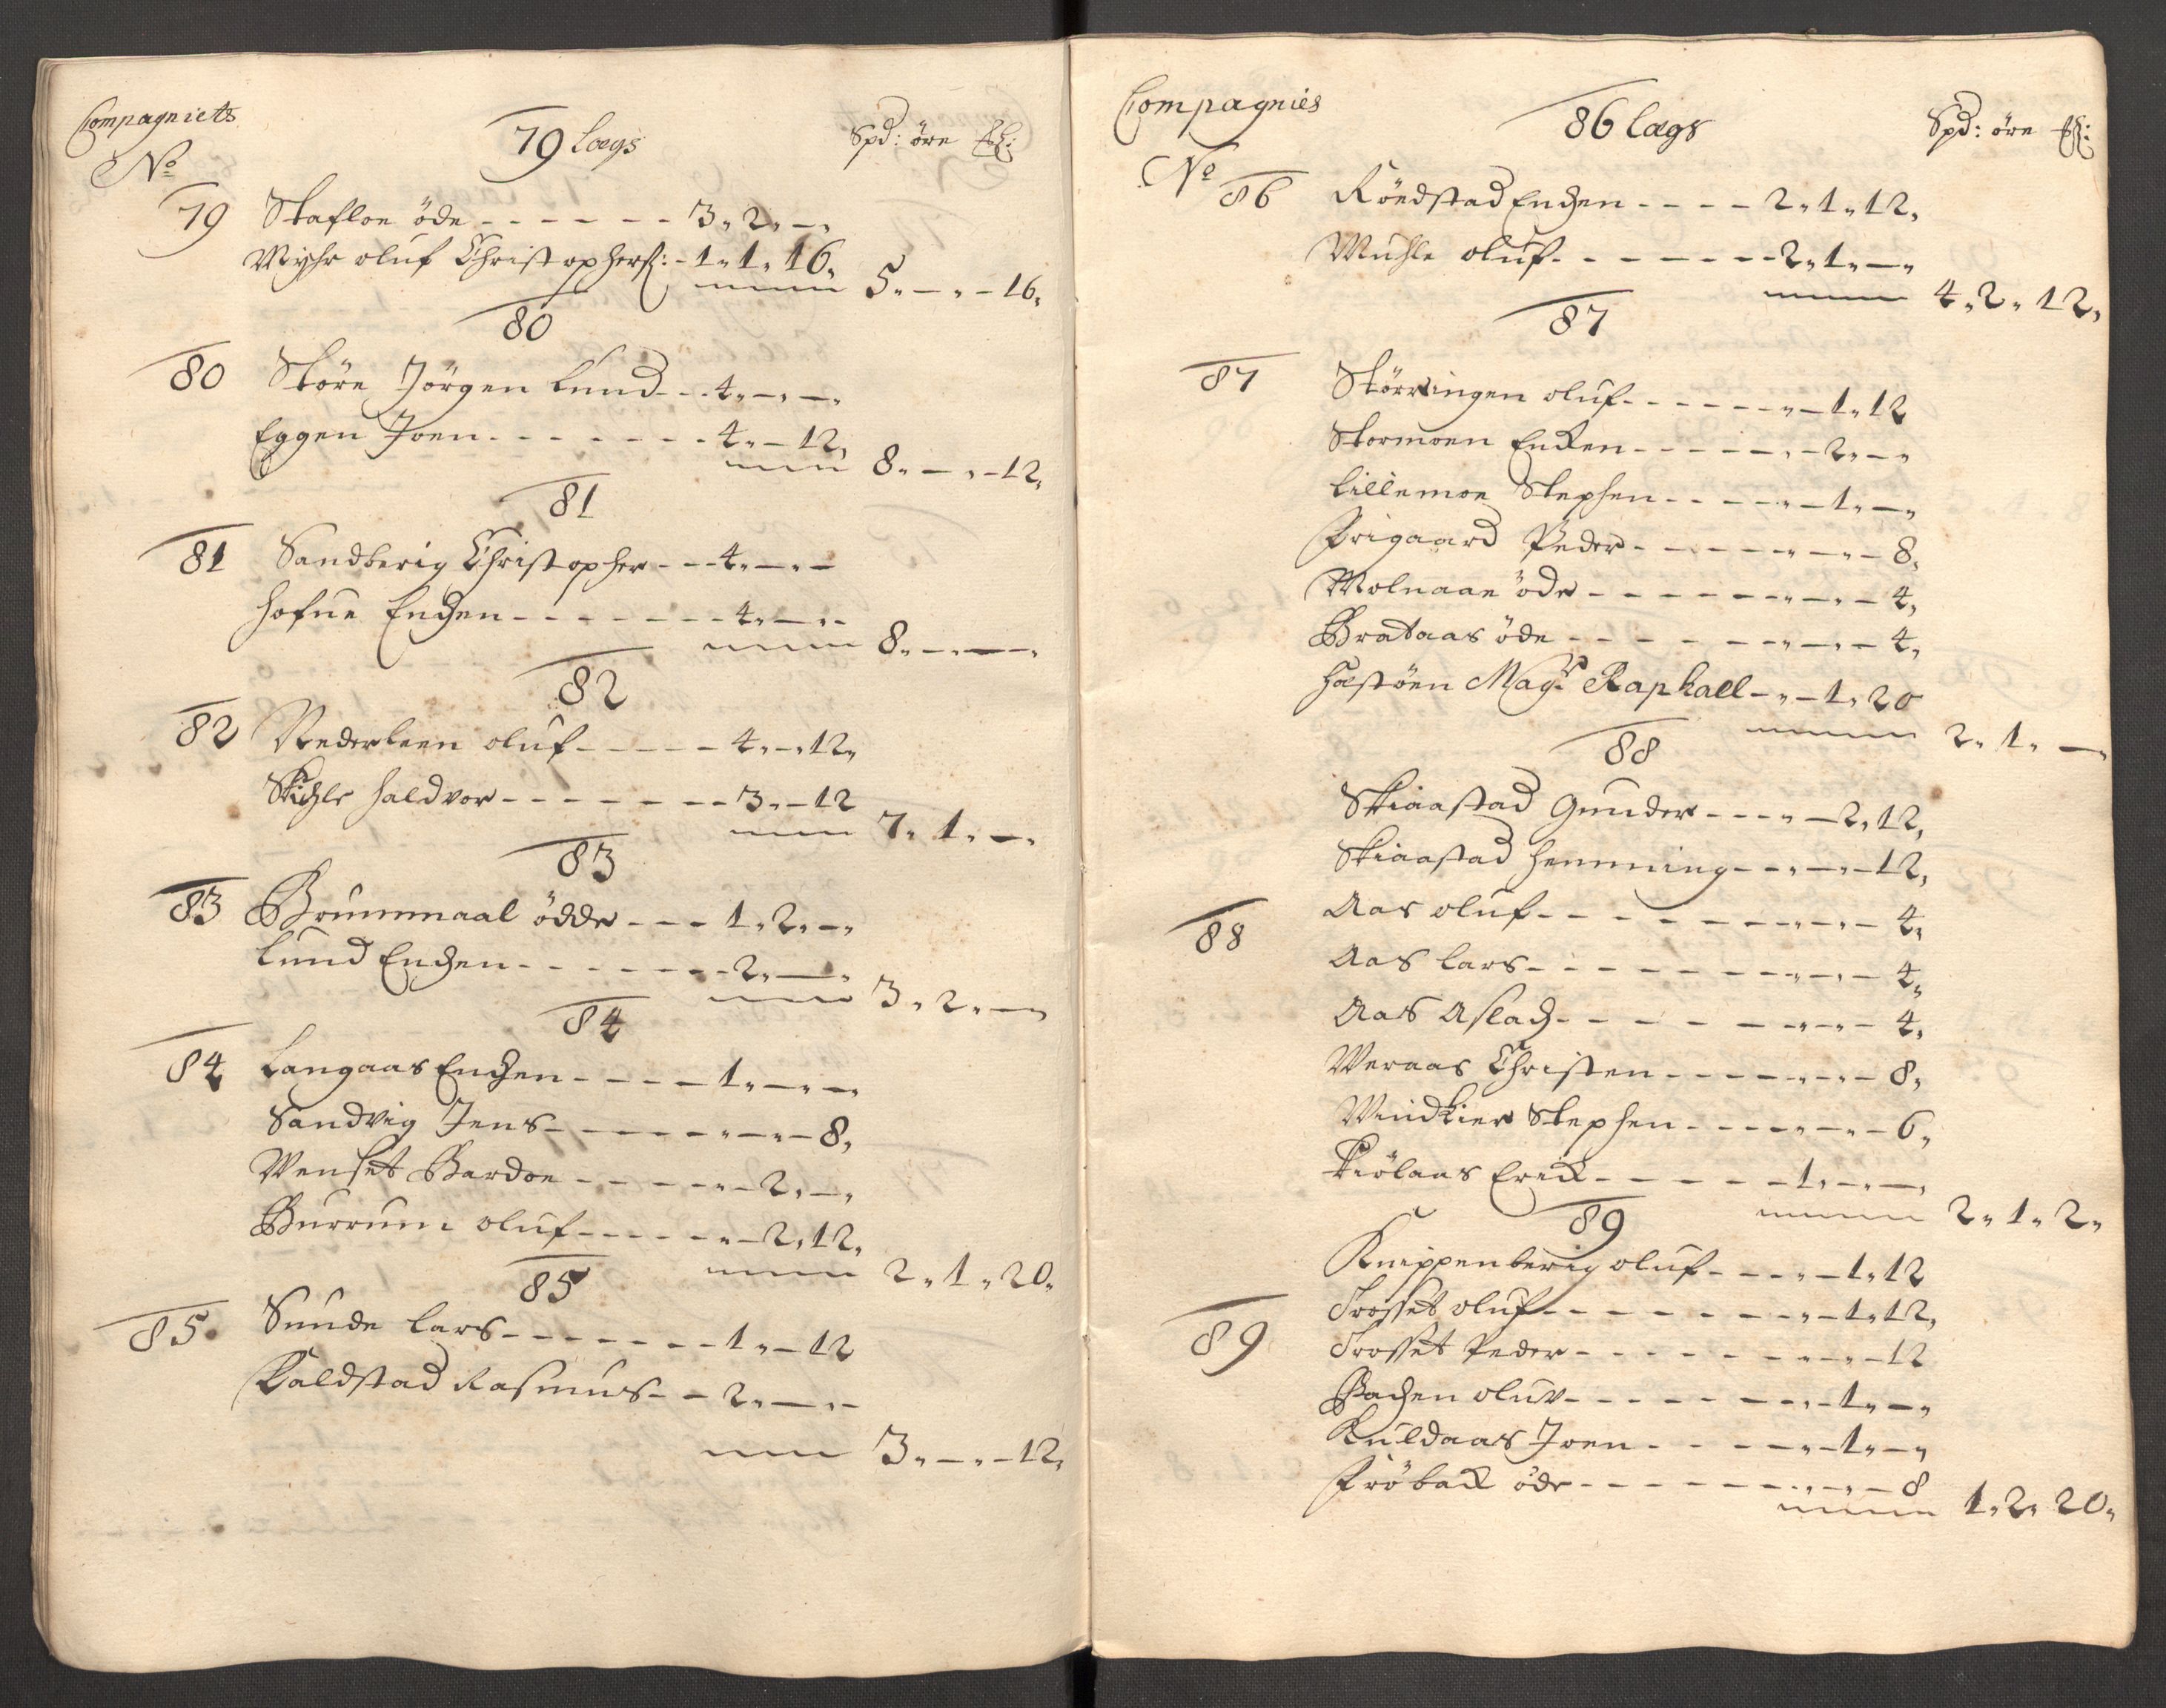 Compagniets
No
79 Lægs
Spd: øre ß:
79 Stafloe öde - - - - - - 3 " 2 " - "
Myhr oluf Christophers: - 1 " 1 " 16 "
5 " - " - 16 "
80
80 Störe Jörgen Lund - - - 4 " - " - "
Eggen Joen - - - - - - - 4 " - 12 "
8 " - " - 12 "
81
81 Sandberig Christopher - - - 4 " - " -
Hofne Enchen - - - - - - - 4 " - " -
8 " - " - "
82
82 Nederleen oluf - - - - - 4 " - " 12 "
Haldvor - - - - - - - 3 " - 12
7 " 1 " - "
83
83 Brummaal ödde - - - 1 " 2 " - "
Lund Enchen - - - - - - - 2 " - "
3 " 2 " - "
84
84 Langaas Enchen - - - - 1 " - " - "
Sandvig Jens - - - - - " - " - 8 "
Wenset Bardoe - - - - " - 2 " - "
Burrum oluf - - - - - " - 2 " 12 "
2 " 1 " 20 "
85
85 Sunde Lars - - - - - - - 1 " - 12
Kaldstad Rasmus - - 2 " - " -
3 " - " - 12 "
Compagnies
No
86 Lægs
Spd: øre ß:
86 Röedstad Enchen - - - - 2 " 1 " 12 "
Muhle oluf - - - - - - - 2 " 1 " - "
4 " 2 " 12 "
87
87 Störringen oluf - - - - - - " - 1 " 12
Stormoen Encken - - - - - " - 2 " - "
Lillemoe Stephen - - - - " - 1 " - "
Frigaard Peder - - - - - " - " - 8 "
Molnaae öde - - - - - - " - " - 4 "
Brataas öde - - - - - - " - " - 4 "
Hastöen Magr Raphaell - " - 1 " 20
2 " 1 " - "
88
Skiaastad Gunder - - - " - 2 " 12 "
Skiaastad Henning - - " - " - 12 "
Aas oluf - - - - - - - " - " - 4 "
88 Aas Lars - - - - - - - " - " - 4 "
Aas Aslach - - - - - - " - " - 4 "
Weraas Christen - - - - - " - " - 8 "
Windkier Stephen - - - - " - " - 6 "
Kiölaas Erick - - - - - - 1 " - " - "
2 " 1 " 2 "
89
Knippenberig oluf - - - " - 1 " 12
Trosset oluf - - - - - - - " - 1 " 12 "
89 Trosset Peder - - - - - - " - " - 12
Bachen oluv - - - - - - - " - 1 " - "
Kuldaas Joen - - - - - " - 1 " - "
Fröback öde - - - - - - - " - " - 8
1 " 2 " 20 "